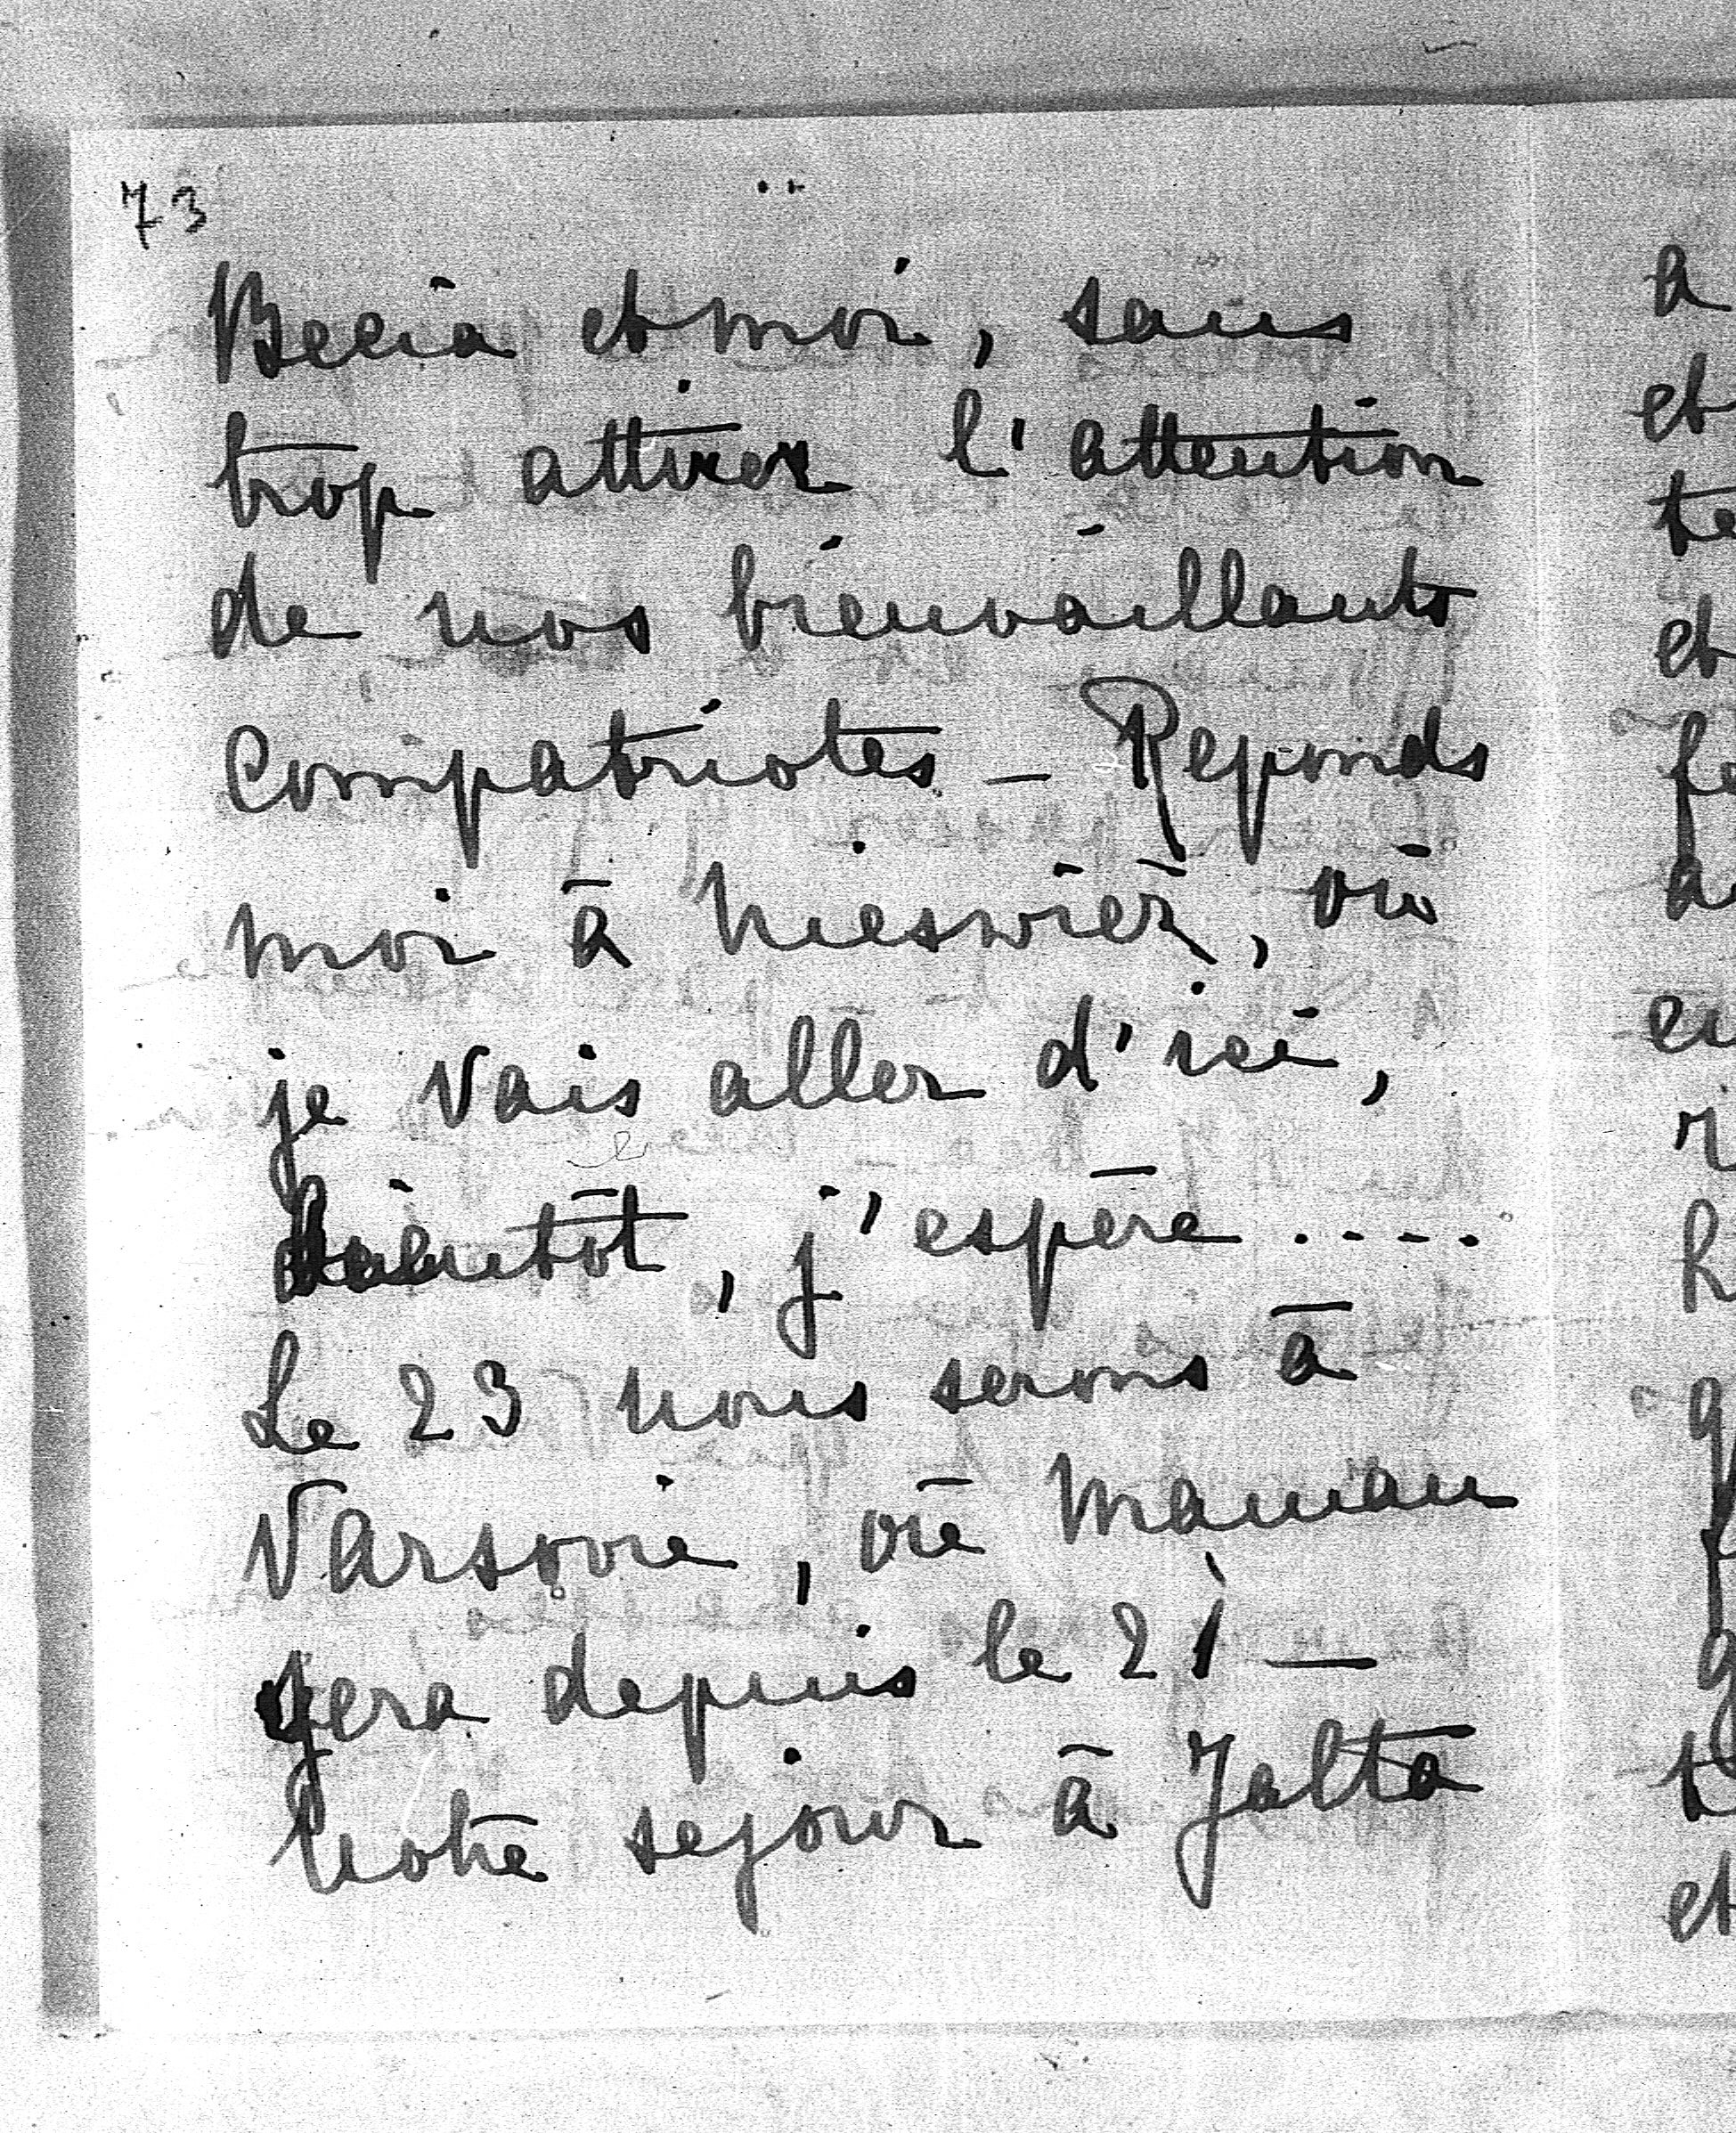 73
Becia et moi, sans
trop attirer l'attention
de nos bienvaillants
compatriotes – Reponds
moi à Nieswież, où
je vais aller d'ici,
bientôt, j'espère ....
Le 23 nous serons à
Varsovie, où Maman
sera depuis le 21 —
Notre sejour à Jalta